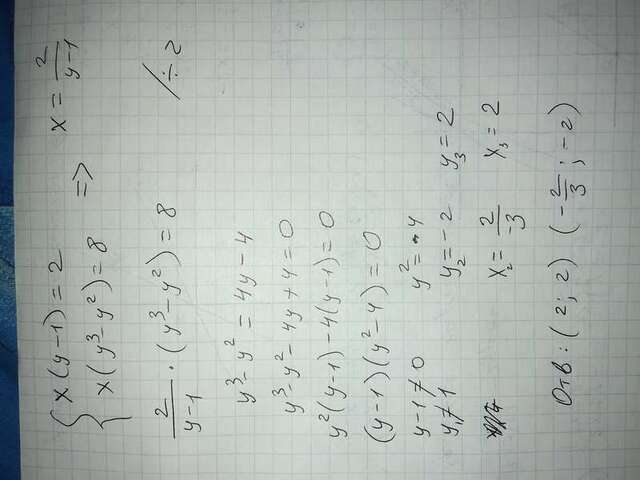 { x(y-1) = 2
x(y³-y²) = 8 => x = 2/(y-1)
2/(y-1) · (y³-y²) = 8 /÷2
y³-y² = 4y-4
y³-y²-4y+4=0
y²(y-1)-4(y-1)=0
(y-1)(y²-4)=0
y-1≠0 y²=4
y₁≠1 y₂=-2 y₃=2
x₂=2/-3 x₃=2
Отв: (2; 2) (-2/3; -2)